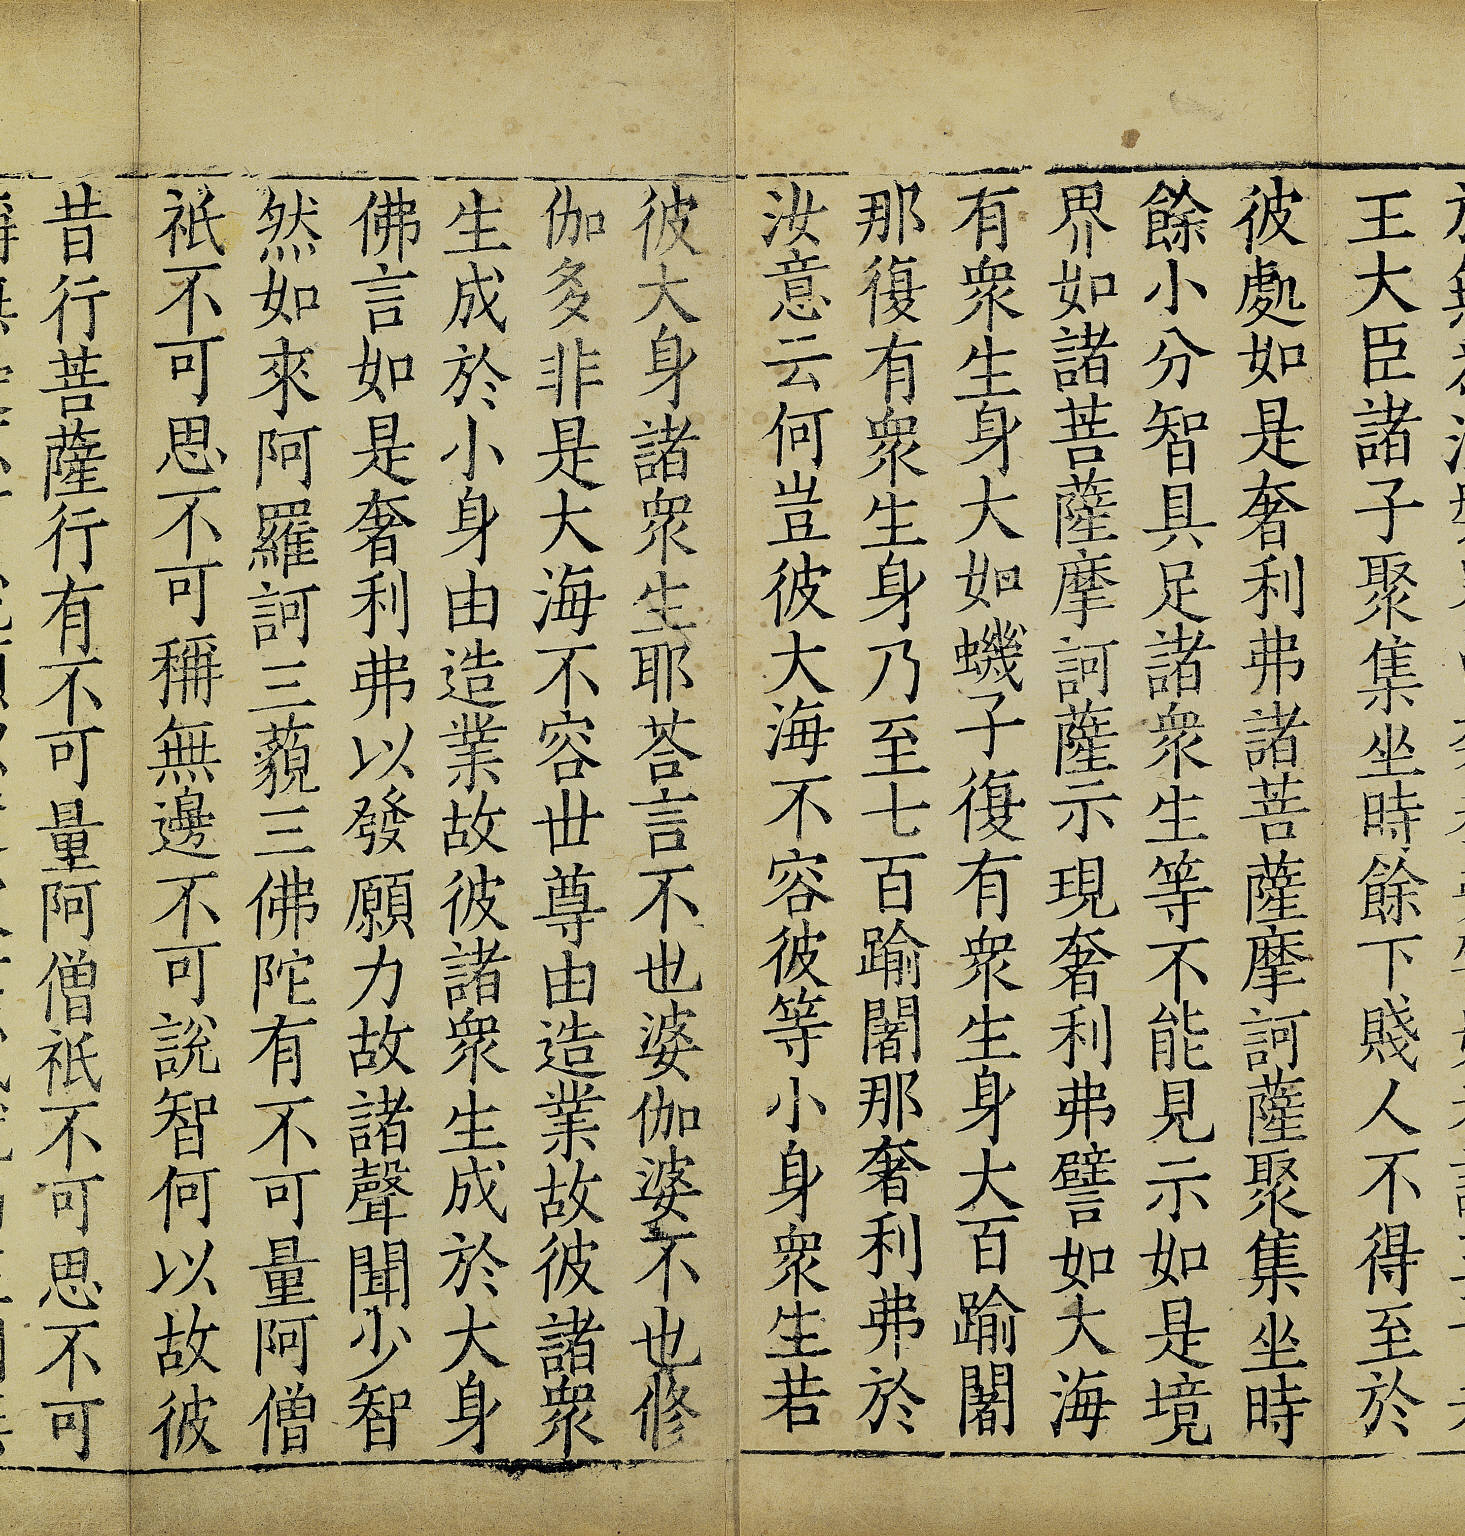 王大臣諸子聚集坐時餘下賤人不得至於
彼處如是奢利弗諸菩薩摩訶薩聚集坐時
餘小分智具足諸衆生等不能見示如是境
界如諸菩薩摩訶薩示現奢利弗譬如大海
有衆生身大如蟣子復有衆生身大百踰闍
那復有衆生身乃至七百踰闍那奢利弗於
汝意云何豈彼大海不容彼等小身衆生若
彼大身諸衆生耶荅言不也婆伽婆不也修
伽多非是大海不容世尊由造業故彼諸衆
生成於小身由造業故彼諸衆生成於大身
佛言如是奢利弗以發願力故諸聲聞少智
然如來阿羅訶三藐三佛陀有不可量阿僧
祇不可思不可稱無邊不可說智何以故彼
昔行菩薩行有不可量阿僧祇不可思不可